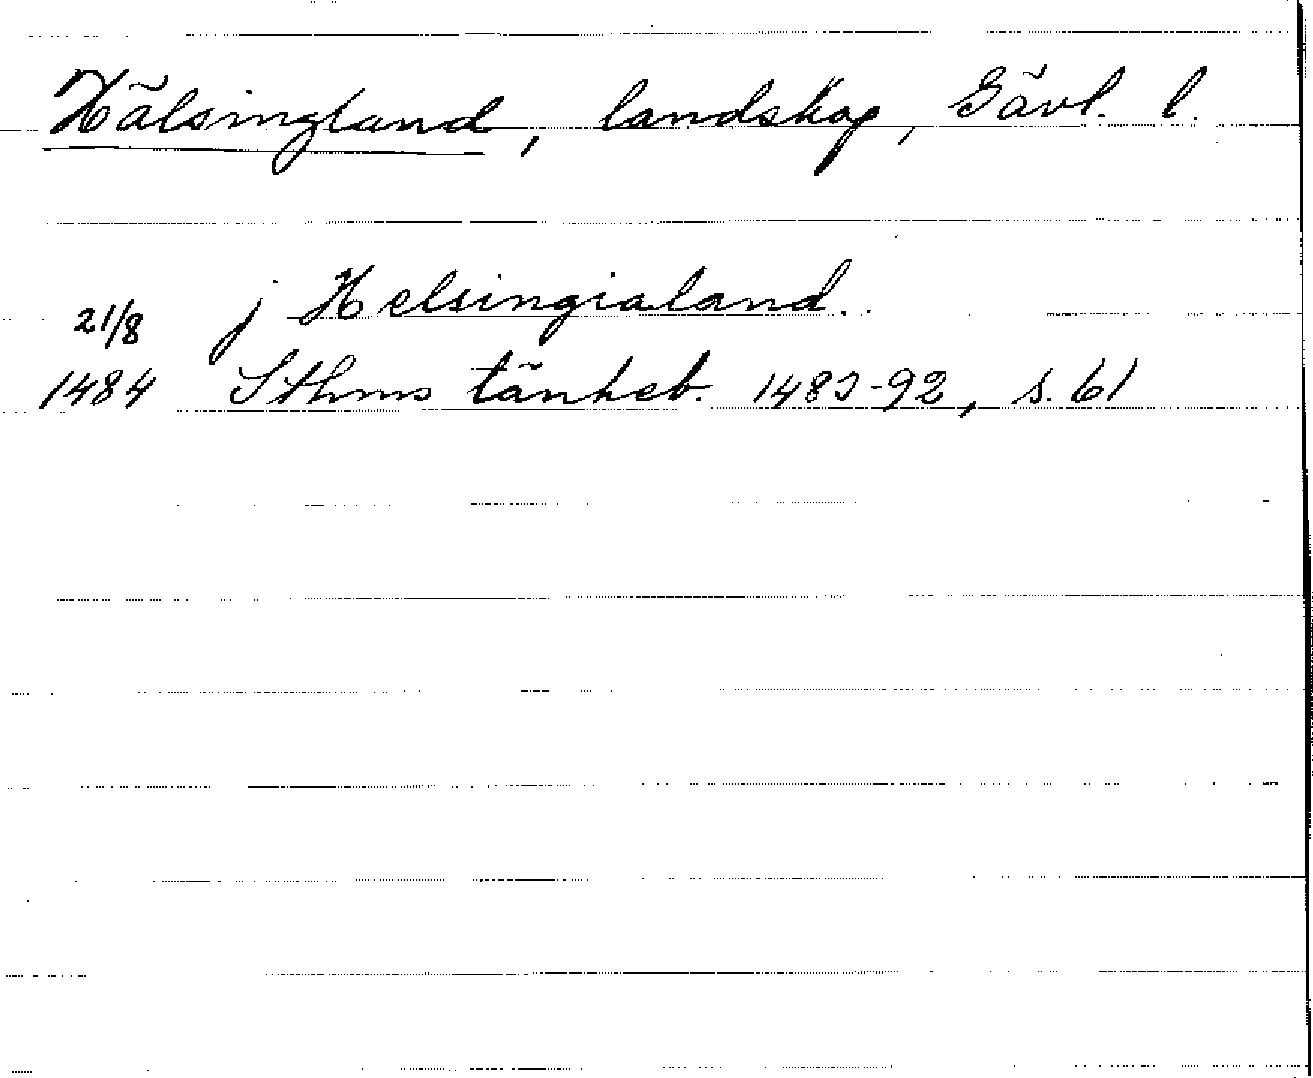 Hälsingland, landskap, Gävl. l.
21/8 j Helsingialand.
1484 Sthms tänkeb. 1483-92, s. 61